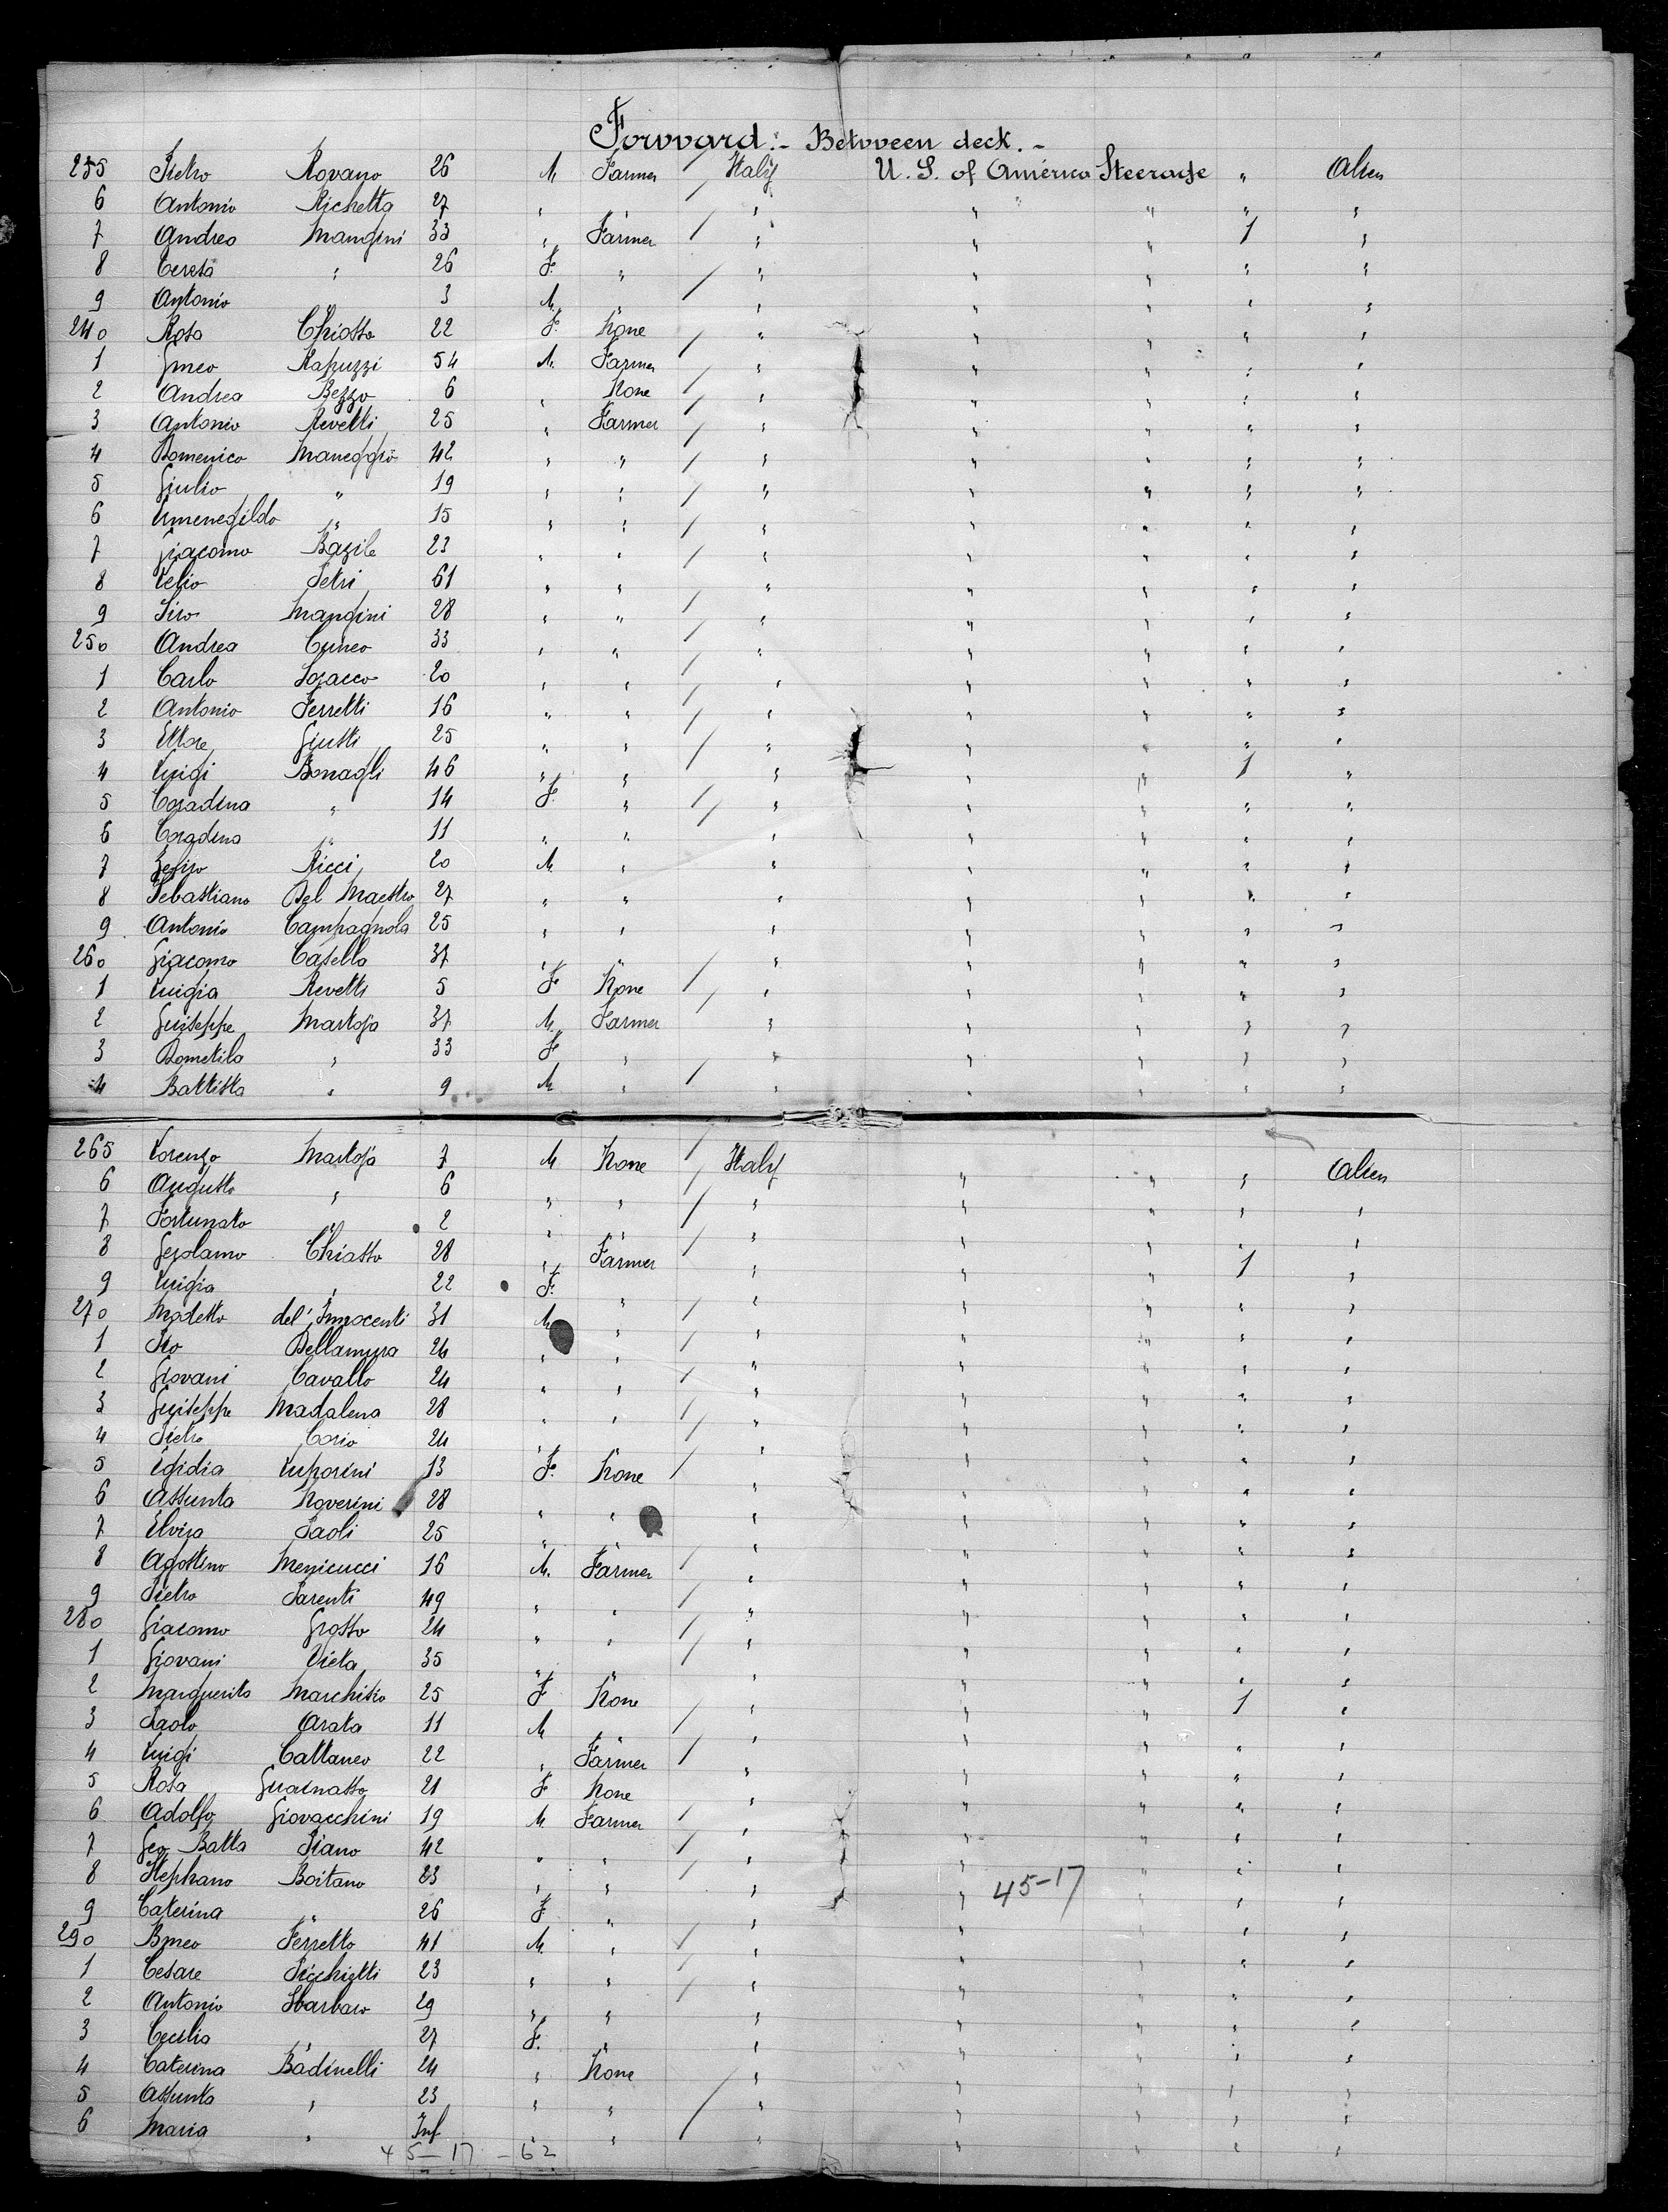 Forward:- Between deck.-
235 Pietro Rovano 26 M Farmer / Italy U. S. of América Steerage " Alien
6 Antonio Richetta 27 " " " " " " " "
7 Andrea Mangini 33 " Farmer / " " " 1 "
8 Ceresa " 26 F. " / " " " " "
9 Antonio " 3 M. " / " " " " "
240 Rosa Chiosso 22 F. None / " " " " "
1 Rapuzzi 54 M. Farmer / " " " " "
2 Andrea Bezzo 6 " None / " " " " "
3 Antonio Revetti 25 " Farmer / " " " " "
4 Domenico Maneggio 42 " " / " " " " "
5 Giulio " 19 " " / " " " " "
6 Ermenegildo " 15 " " / " " " " "
7 Giacomo Bazile 23 " " / " " " " "
8 Lelio Petri 61 " " " " " " "
9 Siro Mangini 28 " " / " " " " "
250 Andrea Cuneo 33 " " / " " " " "
1 Carlo Sgacco 20 " " / " " " " "
2 Antonio Ferretti 16 " " / " " " " "
3 Ettore Giusti 25 " " / " " " " "
4 Luigi Bonagli 46 " " " " " 1 "
5 Coradina " 14 F. " / " " " " "
6 Coradina " 11 " " " " " " "
7 Zefiro Ricci 20 M " " " " " "
8 Sebastiano Del Maestro 27 " " " " " " "
9 Antonio Campagnola 25 " " " " " " "
260 Giacomo Casella 37 " " / " " " " "
1 Luigia Revetti 5 F None / " " " " "
2 Guiseppe Martoja 37 M. Farmer " " " " "
3 Dometila " 33 F " " " " " "
4 Battista " 9 M " / " " " " "
265 Lorenzo Martoja 7 M None / Italy " " " Alien
6 Augusto " 6 " " / " " " " "
7 Fortunato " 2 " " / " " " " "
8 Gerolamo Chiasso 28 " Farmer " " " 1 "
9 Luigia " 22 F. " / " " " " "
270 Modesto del' Innocenti 31 M " / " " " " "
1 Ito Dellamura 24 " " / " " " " "
2 Giovani Cavallo 24 " " / " " " " "
3 Guiseppe Madalena 28 " " / " " " " "
4 Pietro Corio 24 " " / " " " " "
5 Egidia Luporini 13 F. None / " " " " "
6 Assunta Noverini 28 " " " " " " "
7 Elvira Paoli 25 " " " " " " "
8 Agostino Menicucci 16 M. Farmer / " " " " "
9 Pietro Parenti 49 " " / " " " " "
280 Giacomo Grosso 24 " " / " " " " "
1 Giovani Vieta 35 " " / " " " " "
2 Marguerita Marchisio 25 F None / " " " 1 "
3 Paolo Arata 11 M " / " " " " "
4 Luigi Cattaneo 22 " Farmer / " " " " "
5 Rosa Guarnasso 21 F None " " " " "
6 Adolfo Giovacchini 19 M Farmer / " " " " "
7 Geo Batta Piano 42 " " / " " " " "
8 Stephano Boitano 23 " " / " " 45-17 " " "
9 Caterina " 26 F. " " " " " "
290 Bmeo Ferretto 41 M. " / " " " " "
1 Cesare Picchietti 23 " " / " " " " "
2 Antonio Sbarbaro 29 " " / " " " " "
3 Cecilia " 27 F. " " " " " "
4 Caterina Badinelli 24 " None " " " " "
5 Assunta " 23 " " / " " " " "
6 Maria " Inf " " / " " " " "
45-17 - 62